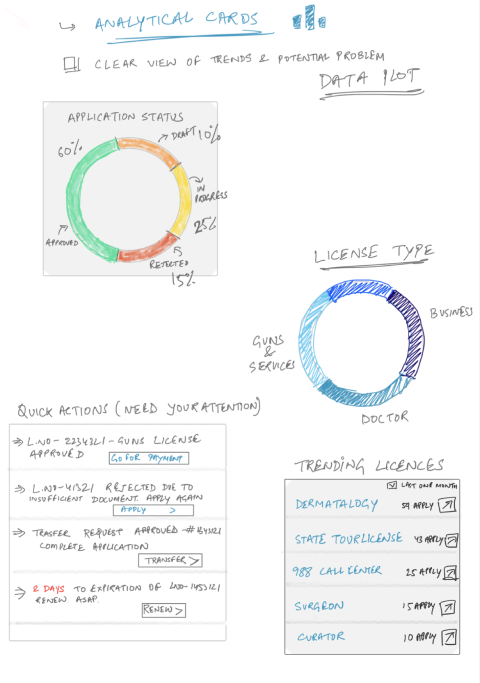 ANALYTICAL CARDS
CLEAR VIEW OF TRENDS & POTENTIAL PROBLEM
DATA PLOT
APPLICATION STATUS
60%
DRAFT 10%
IN PROGRESS
25%
APPROVED
REJECTED
15%
LICENSE TYPE
BUSINESS
GUNS
&
SERVICES
DOCTOR
QUICK ACTIONS (NEED YOUR ATTENTION)
L.NO- 2234321 - GUNS LICENSE
APPROVED
GO FOR PAYMENT
L.NO-41321 REJECTED DUE TO
INSUFFICIENT DOCUMENT. APPLY AGAIN
APPLY >
TRASFER REQUEST APPROVED -
COMPLETE APPLICATION
TRANSFER >
2 DAYS TO EXPIRATION OF
RENEW ASAP.
RENEW >
TRENDING LICENCES
LAST ONE MONTH
DERMATALOGY 59 APPLY
STATE TOUR LICENSE 43 APPLY
988 CALL CENTER 25 APPLY
SURGEON 15 APPLY
CURATOR 10 APPLY